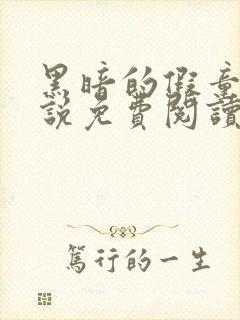 黑暗的假童
說免費閱讀
篤行的一生